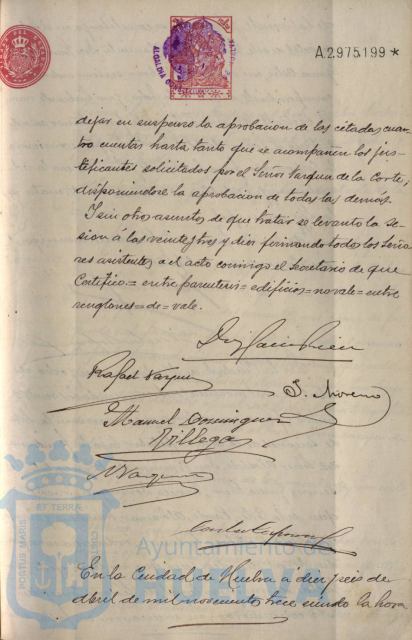 A.2975.199*
ALCALDIA
dejar en suspenso la aprobacion de las citadas cuatro
cuentas hasta tanto que se acompañen los jus-
tificantes solicitados por el Señor Vazquez de la Corte,
disponiendose la aprobacion de todas las demás.
Y sin otros asuntos de que tratar se levantó la se-
sion á las veintitres y diez firmando todos los Seño-
res asistentes a el acto conmigo el Secretario de que
Certifico.= entre parentesis = edificios = no vale = entre
renglones = de = vale.
Rafael Vazquez
J. Moreno
Manuel Dominguez
Villegas
Vazquez
PORTUS MARIS
ET TERRÆ
CUSTODIA
Ayuntamiento de
HUELVA
En la Ciudad de Huelva á diez y seis de
abril de mil novecientos trece siendo la hora